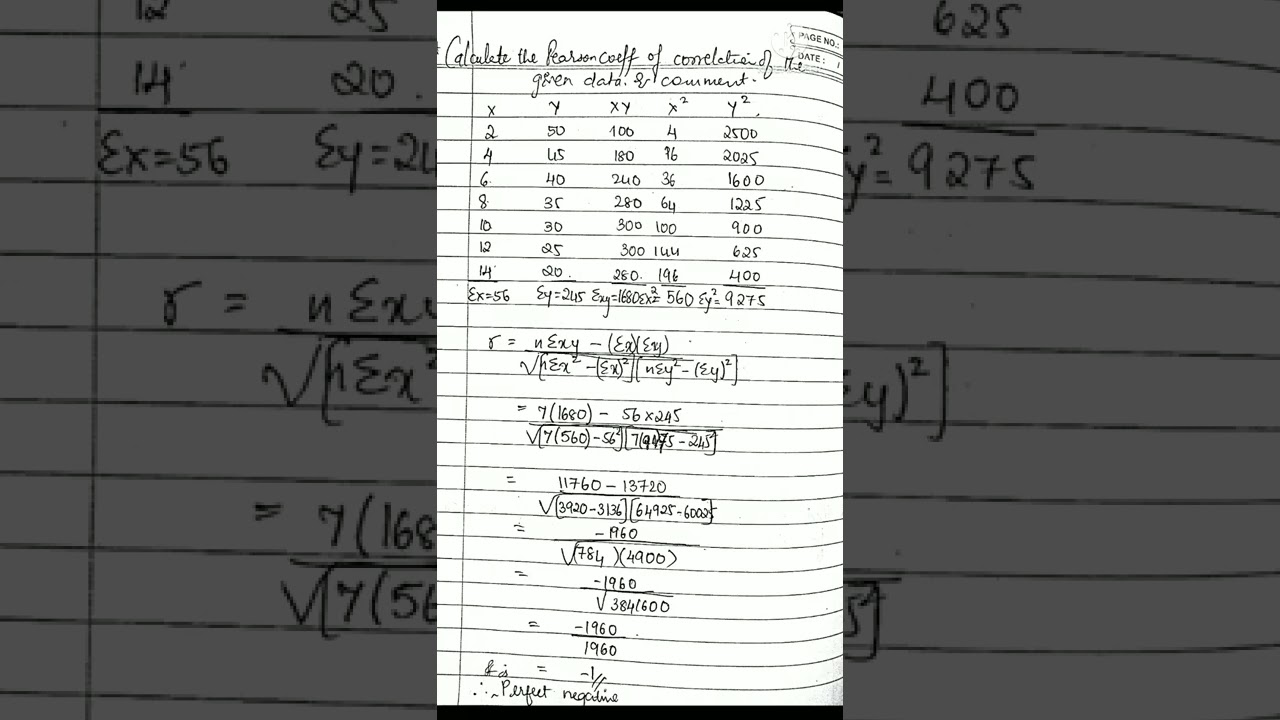 PAGE NO.:
DATE:
Calculate the Pearson coeff of correlation of the
given data & comment.
X Y XY X² Y²
2 50 100 4 2500
4 45 180 16 2025
6 40 240 36 1600
8 35 280 64 1225
10 30 300 100 900
12 25 300 144 625
14 20 280 196 400
Σx=56 Σy=245 Σxy=1680 Σx²=560 Σy²=9275
r = nΣxy - (Σx)(Σy)
√[nΣx² - (Σx)²][nΣy² - (Σy)²]
= 7(1680) - 56×245
√[7(560)-56²][7(9275 - 245²]
= 11760 - 13720
√[3920-3136][64925-60025]
= -1960
√(784)(4900)
= -1960
√3841600
= -1960
1960
= -1
∴ Perfect negative